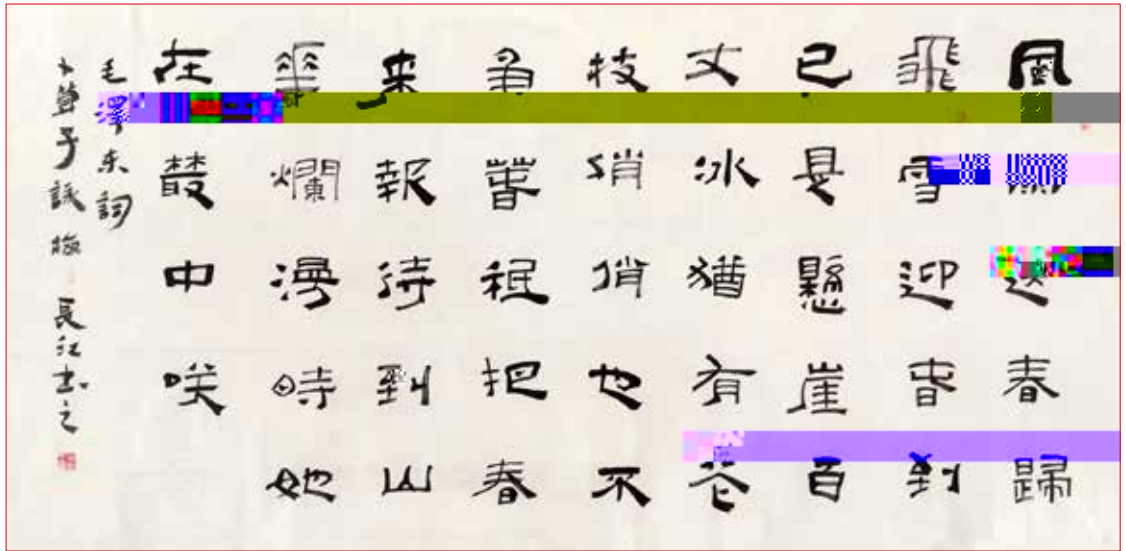 風春歸
飛雪迎春到
已是懸崖百
丈冰猶有花
枝俏俏也不
爭春祗把春
来報待到山
華爛漫時她
在叢中咲
毛澤东詞
卜算子詠梅 長江书之